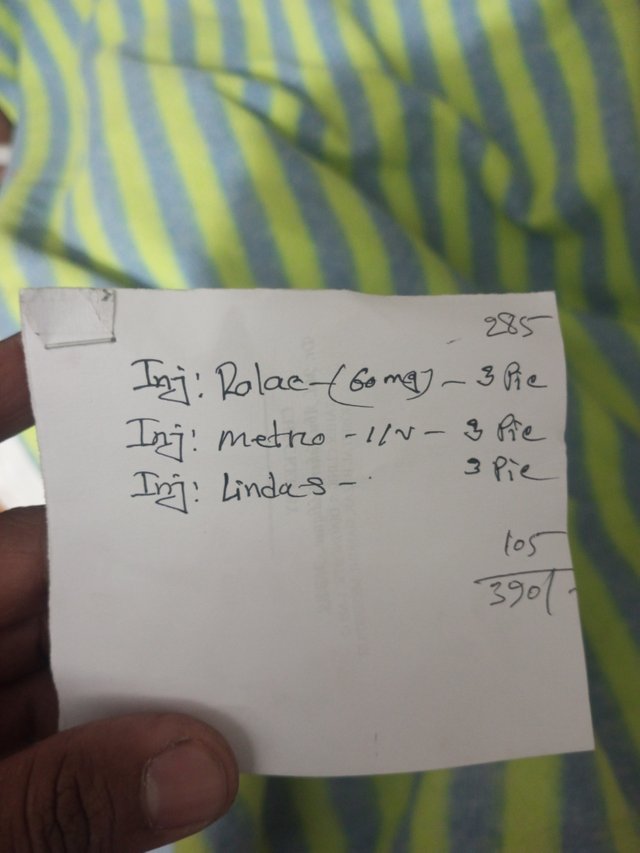 285
Inj: Rolac - (60 mg) - 3 Pic
Inj: metro - I/V - 3 Pic
Inj: Lindas - 3 Pic
105
390/-